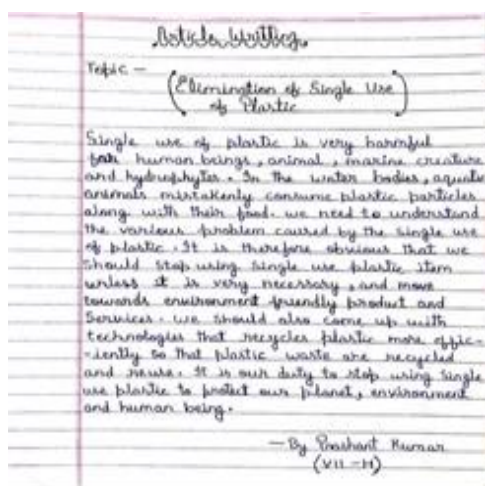 Article Writting
Topic -
(Elimination of Single Use
of Plastic)
Single use of plastic is very harmful
for human beings, animal, marine creature
and hydrophytes. In the water bodies, aquatic
animals mistakenly consume plastic particles
along with their food. we need to understand
the various problem caused by the single use
of plastic. It is therefore obvious that we
should stop using single use plastic item
unless it is very necessary, and move
towards environment friendly product and
Services. we should also come up with
technologies that recycles plastic more effic-
-iently so that plastic waste are recycled
and reuse. It is our duty to stop using single
use plastic to protect our planet, environment
and human being.
- By Prashant Kumar
(VII-H)